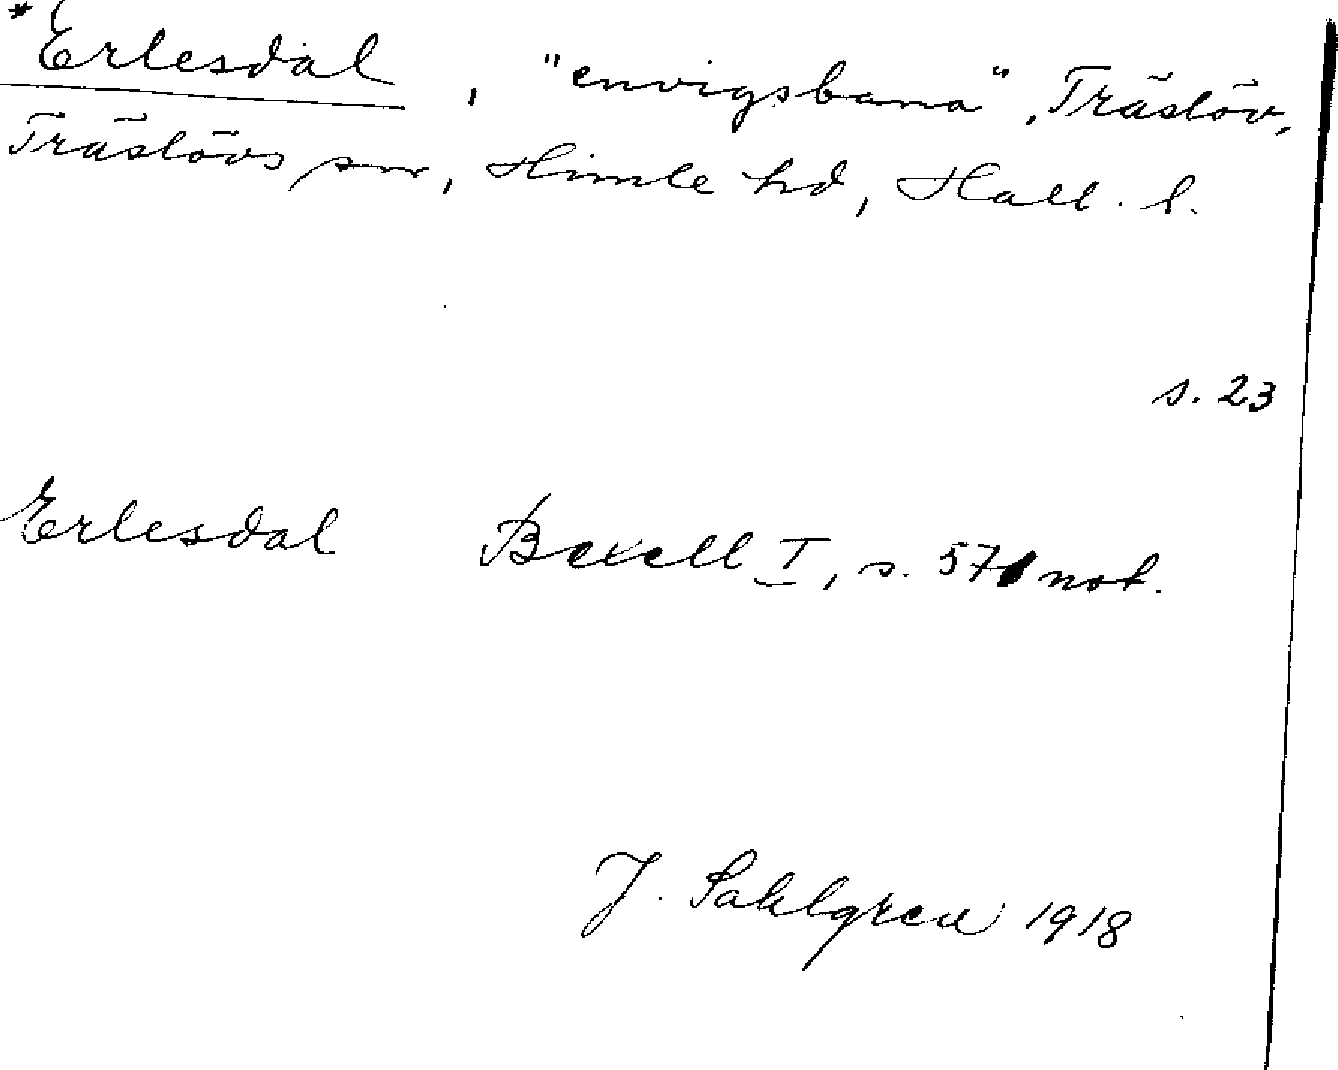 * Erlesdal, "envigsbana", Träslöv,
Träslövs sn, Himle hd, Hall. l.
s. 23
Erlesdal Bexell I, s. 57 not.
J. Sahlgren 1918